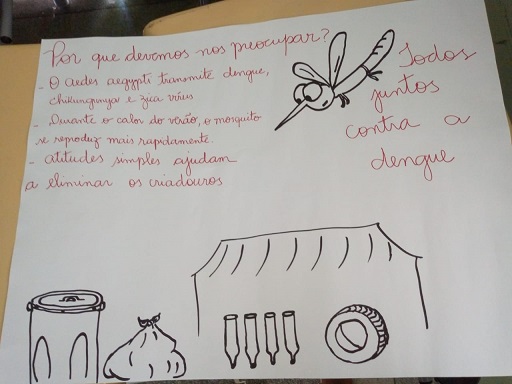 Por que devemos nos preocupar?
- O aedes aegypti transmite dengue,
chikungunya e zica vírus
- Durante o calor do verão, o mosquito
se reproduz mais rapidamente.
- atitudes simples ajudam
a eliminar os criadouros
Todos
juntos
contra a
dengue